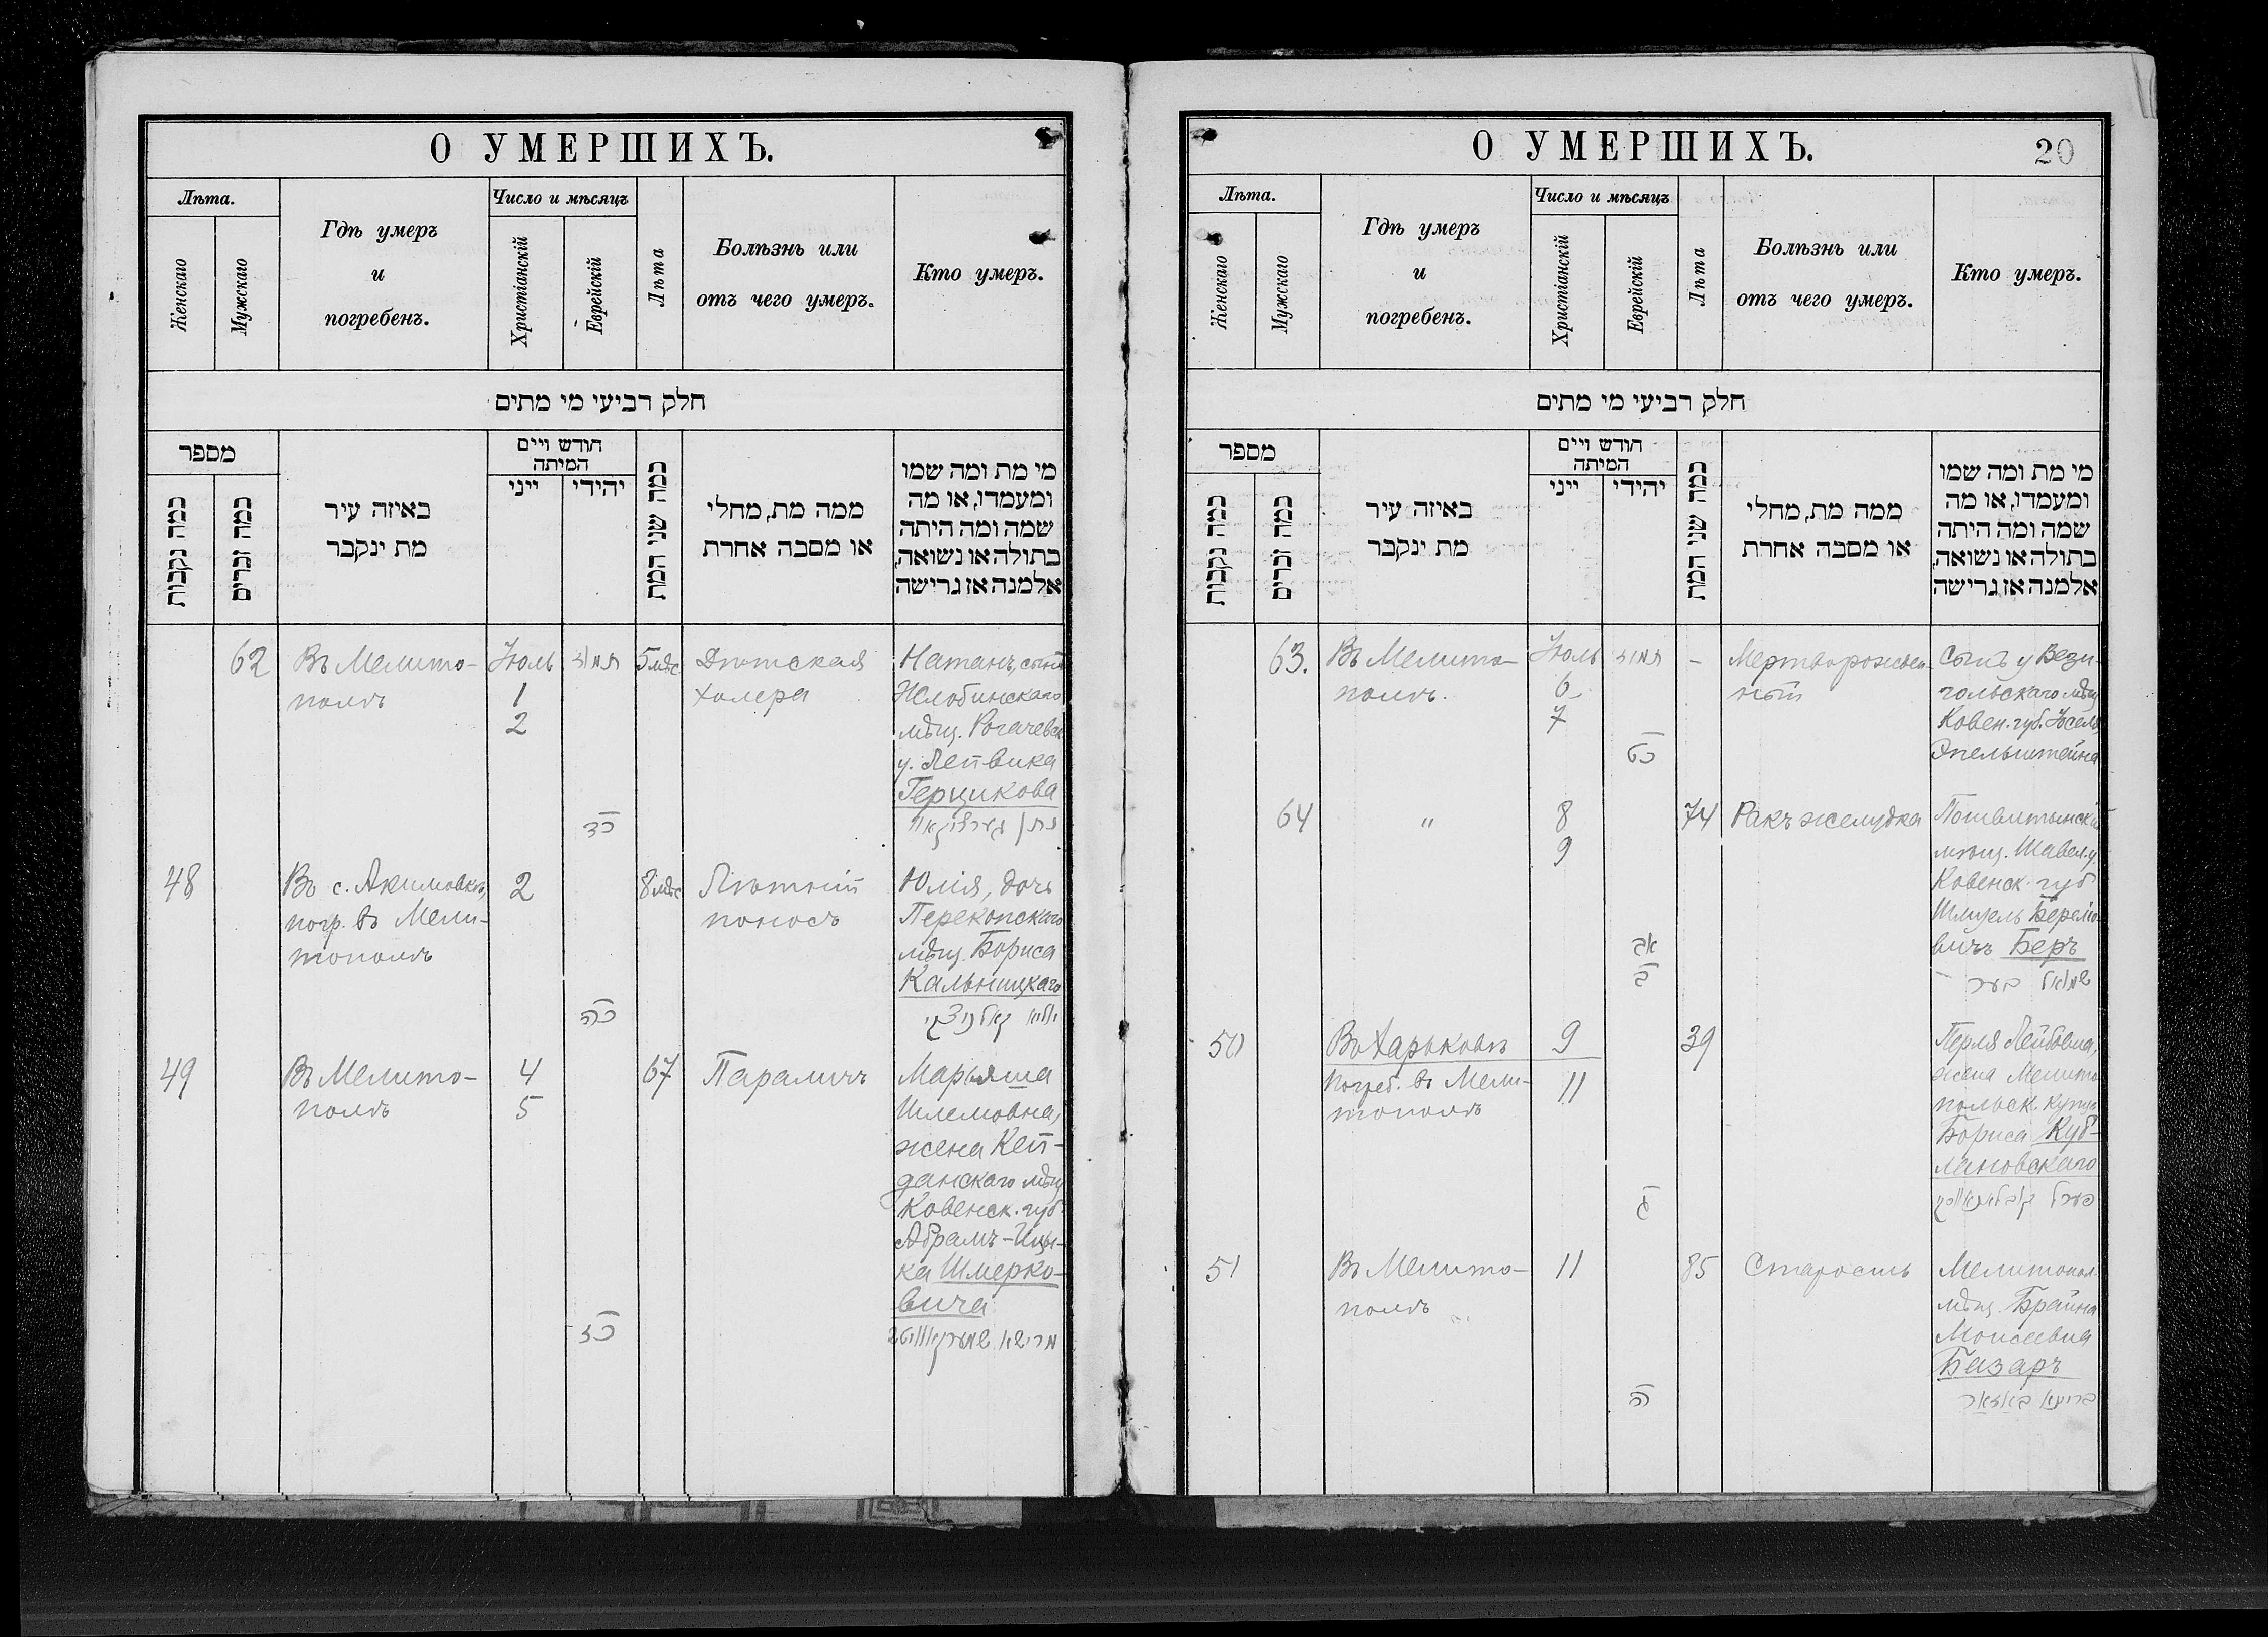 О УМЕРШИХЪ.
Лѣта.
Женскаго
Мужскаго
Гдѣ умеръ
и
погребенъ.
Число и мѣсяцъ
Христіанскій
Еврейскій
Лѣта
Болѣзнь или
отъ чего умеръ.
Кто умеръ.
חלק רביעי מי מתים
מספר
כמה נקבות
כמה זכרים
באיזה עיר
מת ינקבר
חודש ויים
המיתה
ייני
יהידי
כמה שני המת
ממה מת, מחלי
או מסבה אחרת
מי מת ומה שמו
ומעמדו, או מה
שמה ומה היתה
בתולה או נשואה,
אלמנה אז גרישה
62
Въ Мелито-
полѣ
Іюль
1
2
תמוז
כד
5 мѣс
Дѣтская
холера
Натанъ, сынъ
Жлобинскаго
мѣщ. Рогачевск
у. Лейвика
Герцикова
נתן גערציקאוו
48
Въ с. Акимовкѣ,
погр. въ Мели-
тополѣ
2
כה
8 мѣс
Лѣтній
поносъ
Юлія, дочь
Перекопскаго
мѣщ. Бориса
Кальницкаго
יוליא קאלניצקי
49
Въ Мелито-
полѣ
4
5
כז
67
Параличъ
Марьяша
Шлемовна,
жена Кей-
данскаго мѣщ
Ковенск. губ.
Абрамъ-Ицы-
ка Шмерко-
вича
מרישא שמערקאוויטש
О УМЕРШИХЪ.
20
Лѣта.
Женскаго
Мужскаго
Гдѣ умеръ
и
погребенъ.
Число и мѣсяцъ
Христіанскій
Еврейскій
Лѣта
Болѣзнь или
отъ чего умеръ.
Кто умеръ.
חלק רביעי מי מתים
מספר
כמה נקבות
כמה זכרים
באיזה עיר
מת ינקבר
חודש ויים
המיתה
ייני
יהידי
כמה שני המת
ממה מת, מחלי
או מסבה אחרת
מי מת ומה שמו
ומעמדו, או מה
שמה ומה היתה
בתולה או נשואה,
אלמנה אז גרישה
63.
Въ Мелито-
полѣ.
Іюль
6
7
תמוז
כט
-
Мертворожден-
ный
Сынъ у Вези-
гольскаго мѣщ
Ковен. губ. Іосель
Эпельштейна
64
"
8
9
אב
ב
74
Ракъ желудка
мѣщ. Шавел. у.
Ковенск. губ
Шмуель
вичъ Беръ
שמואל בער
50
Въ Харьковѣ
погреб. въ Мели-
тополѣ
9
11
ג
39
Перля Лейбовна,
жена Мелито
польск. купца
Бориса Куб-
лановскаго
פערל קובלאנאווסקי
51
Въ Мелито-
полѣ
11
ה
85
Старость
Мелитопол.
мѣщ. Брайна
Моисеевна
Базаръ
בריינא באזאר